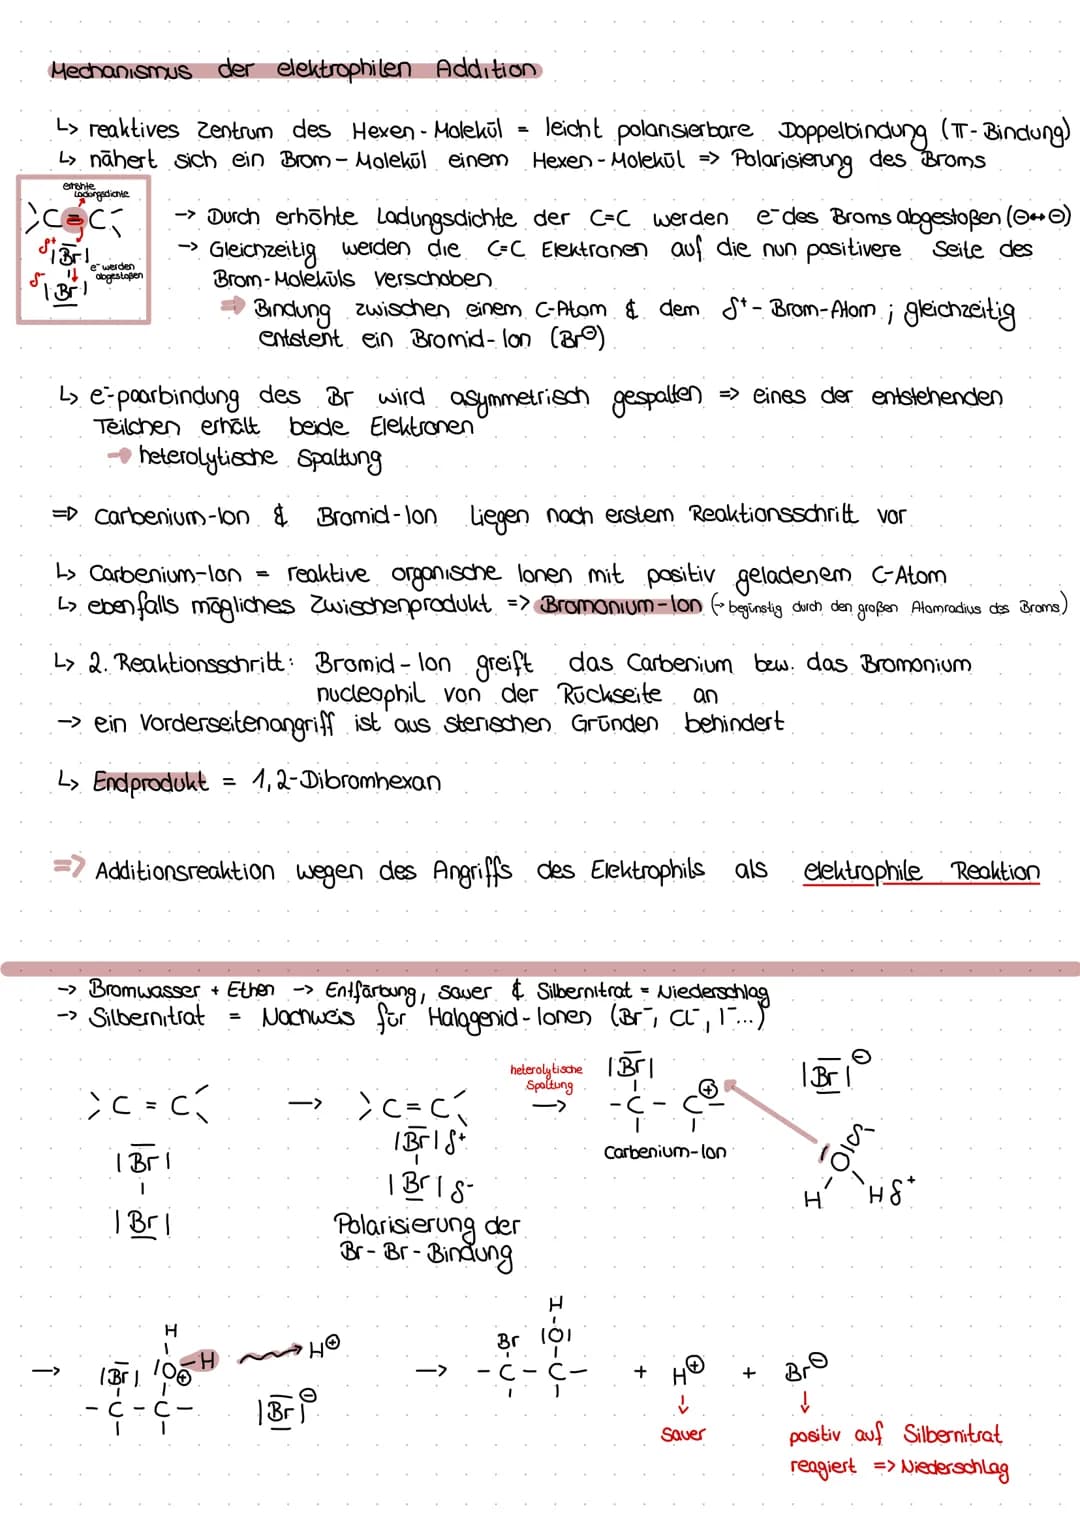 Mechanismus der elektrophilen Addition
↳ reaktives Zentrum des Hexen-Molekül = leicht polarisierbare Doppelbindung (π-Bindung)
↳ nähert sich ein Brom-Molekül einem Hexen-Molekül => Polarisierung des Broms
erhöhte
Ladungsdichte
C=C
δ+ |Br|
e⁻ werden
abgestoßen
δ- |Br|
-> Durch erhöhte Ladungsdichte der C=C werden e⁻ des Broms abgestoßen (⊖↔⊖)
-> Gleichzeitig werden die C=C Elektronen auf die nun positivere Seite des
Brom-Moleküls verschoben
=> Bindung zwischen einem C-Atom & dem δ+-Brom-Atom ; gleichzeitig
entsteht ein Bromid-Ion (Br⊖)
↳ e⁻-paarbindung des Br wird asymmetrisch gespalten => eines der entstehenden
Teilchen erhält beide Elektronen
→ heterolytische Spaltung
=> Carbenium-Ion & Bromid-Ion liegen nach erstem Reaktionsschritt vor
↳ Carbenium-Ion = reaktive organische Ionen mit positiv geladenem C-Atom
↳ ebenfalls mögliches Zwischenprodukt => Bromonium-Ion (→ begünstig durch den großen Atomradius des Broms)
↳ 2. Reaktionsschritt: Bromid-Ion greift das Carbenium bzw. das Bromonium
nucleophil von der Rückseite an
-> ein Vorderseitenangriff ist aus sterischen Gründen behindert
↳ Endprodukt = 1,2-Dibromhexan
=> Additionsreaktion wegen des Angriffs des Elektrophils als elektrophile Reaktion
-> Bromwasser + Ethen -> Entfärbung, sauer & Silbernitrat = Niederschlag
-> Silbernitrat = Nachweis für Halogenid-Ionen (Br⁻, Cl⁻, I⁻...)
C = C
|Br|
|Br|
->
C = C
|Br| δ+
|Br| δ-
Polarisierung der
Br-Br-Bindung
heterolytische
Spaltung
->
|Br|
-C-C⊕
Carbenium-Ion
|Br|⊖
|O| δ-
H H δ+
->
H
|Br| |O⊕-H → H⊕
-C-C-
|Br|⊖
->
H
Br |O|
-C-C- + H⊕ + Br⊖
↓ ↓
sauer
positiv auf Silbernitrat
reagiert => Niederschlag